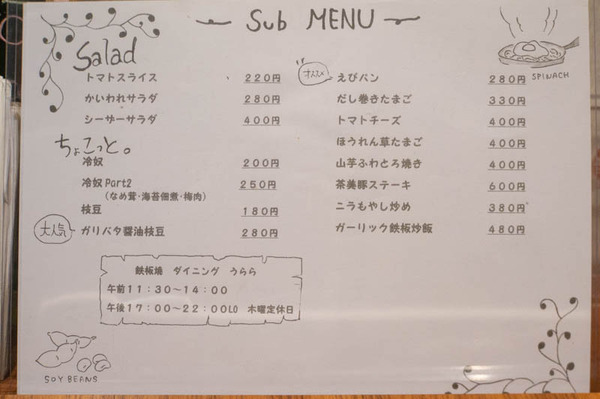 Sub MENU
Salad
トマトスライス 220円
かいわれサラダ 280円
シーザーサラダ 400円
ちょこっと。
冷奴 200円
冷奴Part2 250円
(なめ茸・海苔佃煮・梅肉)
枝豆 180円
大人気 ガリバタ醤油枝豆 280円
オススメ えびパン 280円
だし巻きたまご 330円
トマトチーズ 400円
ほうれん草たまご 400円
山芋ふわとろ焼き 400円
茶美豚ステーキ 600円
ニラもやし炒め 380円
ガーリック鉄板炒飯 480円
SPINACH
鉄板焼 ダイニング うらら
午前11:30〜14:00
午後17:00〜22:00LO 木曜定休日
SOY BEANS